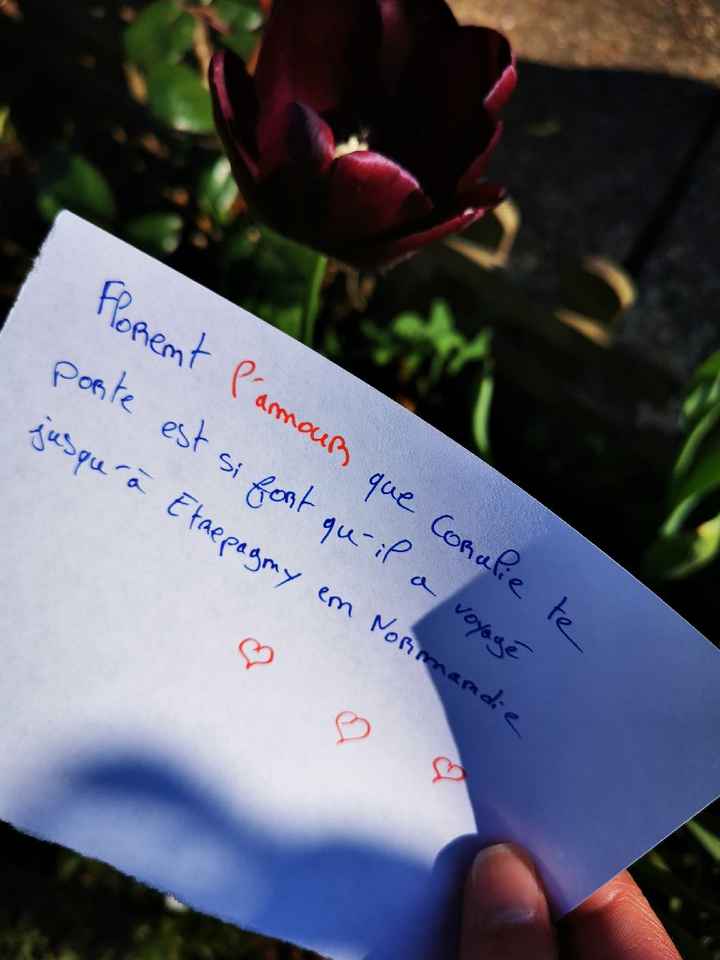 Florent l'amour que Coralie te
porte est si fort qu'il a voyagé
jusqu'à Etrepagny en Normandie